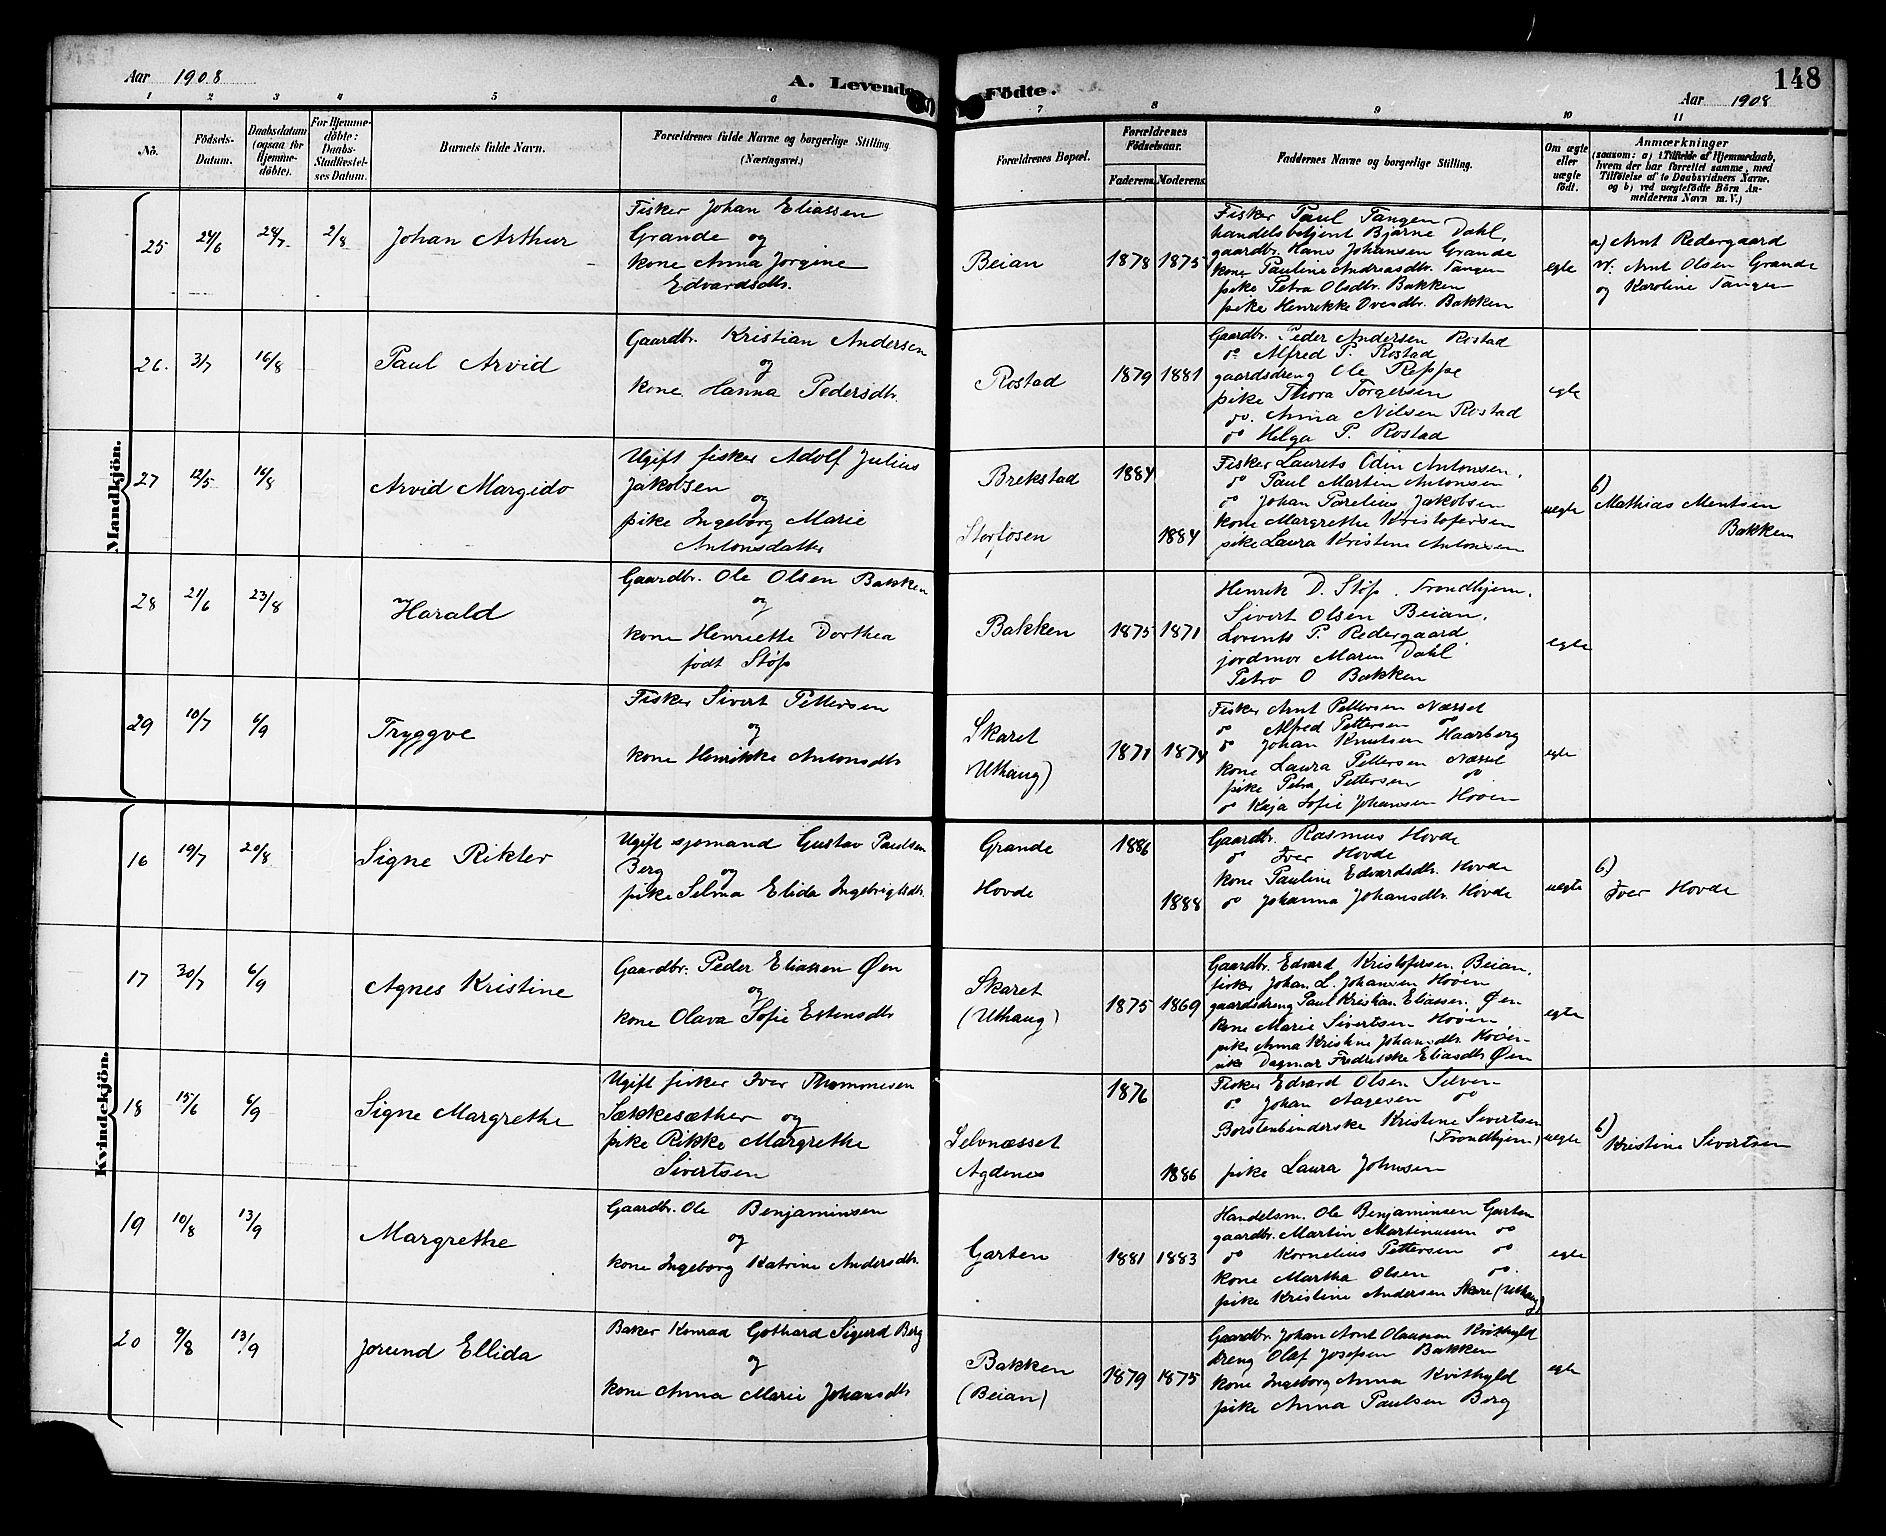 Aar 1908
A. Levende Fødte.
148
Aar 1908
1 2 3 4 5 6 7 8 9 10 11
No.
Fødsels-
Datum.
Daabsdatum
(ogsaa for
Hjemme-
døbte).
For Hjemme-
døbte:
Daabs-
Stadfæstel-
ses Datum.
Barnets fulde Navn.
Forældrenes fulde Navne og borgerlige Stilling.
(Næringsvei.)
Forældrenes Bopæl.
Forældrenes
Fødselsaar.
Faderens. Moderens.
Faddernes Navne og borgerlige Stilling.
Om ægte
eller
uægte
født.
Anmærkninger
(saasom: a) i Tilfælde af Hjemmedaab,
hvem der har forrettet samme, med
Tilføielse af to Daabsvidners Navne,
og b) ved uægtefødte Børn An-
melderens Navn m. V.)
Mandkjön.
25 24/6 24/7 2/8 Johan Arthur
Fisker Johan Eliassen
Grande og
kone Anna Jørgine
Edvardsdtr.
Beian 1878 1875
Fisker Paul Tangen,
handelsbetjent Bjarne Dahl,
gaardbr. Hans Johansen Grande
kone Pauline Andreasdtr. Tangen
pike Petra Olsdtr. Bakken
pike Henrikke Ovesdtr. Bakken
egte
a) Arnt Redergaard
v. Arnt Olsen Grande
og Karoline Tangen
26. 3/7 16/8 Paul Arvid
Gaardbr. Kristian Andersen
og
kone Hanna Pedersdtr.
Rostad 1879 1881
Gaardbr. Peder Andersen Rostad
do Alfred P. Rostad
gaardsdreng Ole Reppe
pike Thora Torgersen
do. Anna Nilsen Rostad
do Helga P. Rostad
egte
27 12/5 16/8 Arvid Margido
Ugift fisker Adolf Julius
Jakobsen
og
pike Ingeborg Marie
Antonsdatter
Brekstad 1884
Storfosen 1884
Fisker Laurets Odin Antonsen,
do Paul Martin Antonsen
do Johan Parelius Jakobsen
kone Margrethe Kristofersen
pike Laura Kristine Antonsen
uegte
b)
Mathias Mentsen
Bakken
28 21/6 23/8 Harald
Gaardbr. Ole Olsen Bakken
og
kone Henriette Dorthea
født Støp
Bakken 1875 1871
Henrik D. Støp. Trondhjem.
Sivert Olsen Beian,
Lorents P. Redergaard,
jordmor Maren Dahl
Petra O Bakken
egte
29 10/7 6/9 Tryggve
Fisker Sivert Pettersen
og
kone Henrikke Antonsdtr
Skaret
(Uthaug) 1871 1874
Fisker Arnt Pettersen Næsset
do Alfred Pettersen do
do Johan Knutsen Haarberg
kone Laura Pettersen Næsset
pike Petra Pettersen do
do Kaja Sofie Johansen Høien
egte
Kvindekjön.
16 19/7 20/8 Signe Rikter
Ugift sjømand Gustav Paulsen
Berg og
pike Selma Elida Ingebrigtsdtr.
Grande 1886
Hovde 1888
Gaardbr. Rasmus Hovde
do Iver Hovde
kone Pauline Edvardsdtr. Hovde
do Johanna Johansdtr. Hovde
uegte
b)
Iver Hovde
17 30/7 6/9 Agnes Kristine
Gaardbr. Peder Eliassen Øen
og
kone Olava Sofie Estensdtr
Skaret
(Uthaug) 1875 1869
Gaardbr. Edvard Kristofersen Beian,
fisker Johan L. Johansen Høien
gaardsdreng Paul Kristian Eliassen Øen
kone Marie Sivertsen Høien
pike Anna Kristine Johansdtr. Høien
pike Dagmar Fredrikke Eliasdtr Øen
egte
18 15/6 6/9 Signe Margrethe
Ugift fisker Iver Thomonesen
Sækkesæther og
pike Rikke Margrethe
Sivertsen
1876
Selvnæsset
Agdenes 1886
Fisker Edvard Olsen Selven
do Johan Aagesen do
Børstenbinderske Kristine Sivertsen
(Trondhjem)
pike Laura Johnsen
uegte
b)
Kristine Sivertsen
19 10/8 13/9 Margrethe
Gaardbr. Ole Benjaminsen
og
kone Ingeborg Katrine Andersdtr.
Garten 1881 1883
Handelsm. Ole Benjaminsen Garten
gaardbr. Martin Martinussen do
do Kornelius Pettersen do
kone Martha Olsen do.
pike Kristine Andersen Skare (Uthaug)
egte
20 9/8 13/9 Jorund Ellida
Baker Konrad Gothard Sigurd Berg
og
kone Anna Marie Johansdtr
Bakken
(Beian) 1879 1875
Gaardbr. Johan Arnt Olaussen Kvithyld
dreng Olaf Josefsen Bakken
kone Ingeborg Anna Kvithyld
pike Anna Paulsen Berg
egte